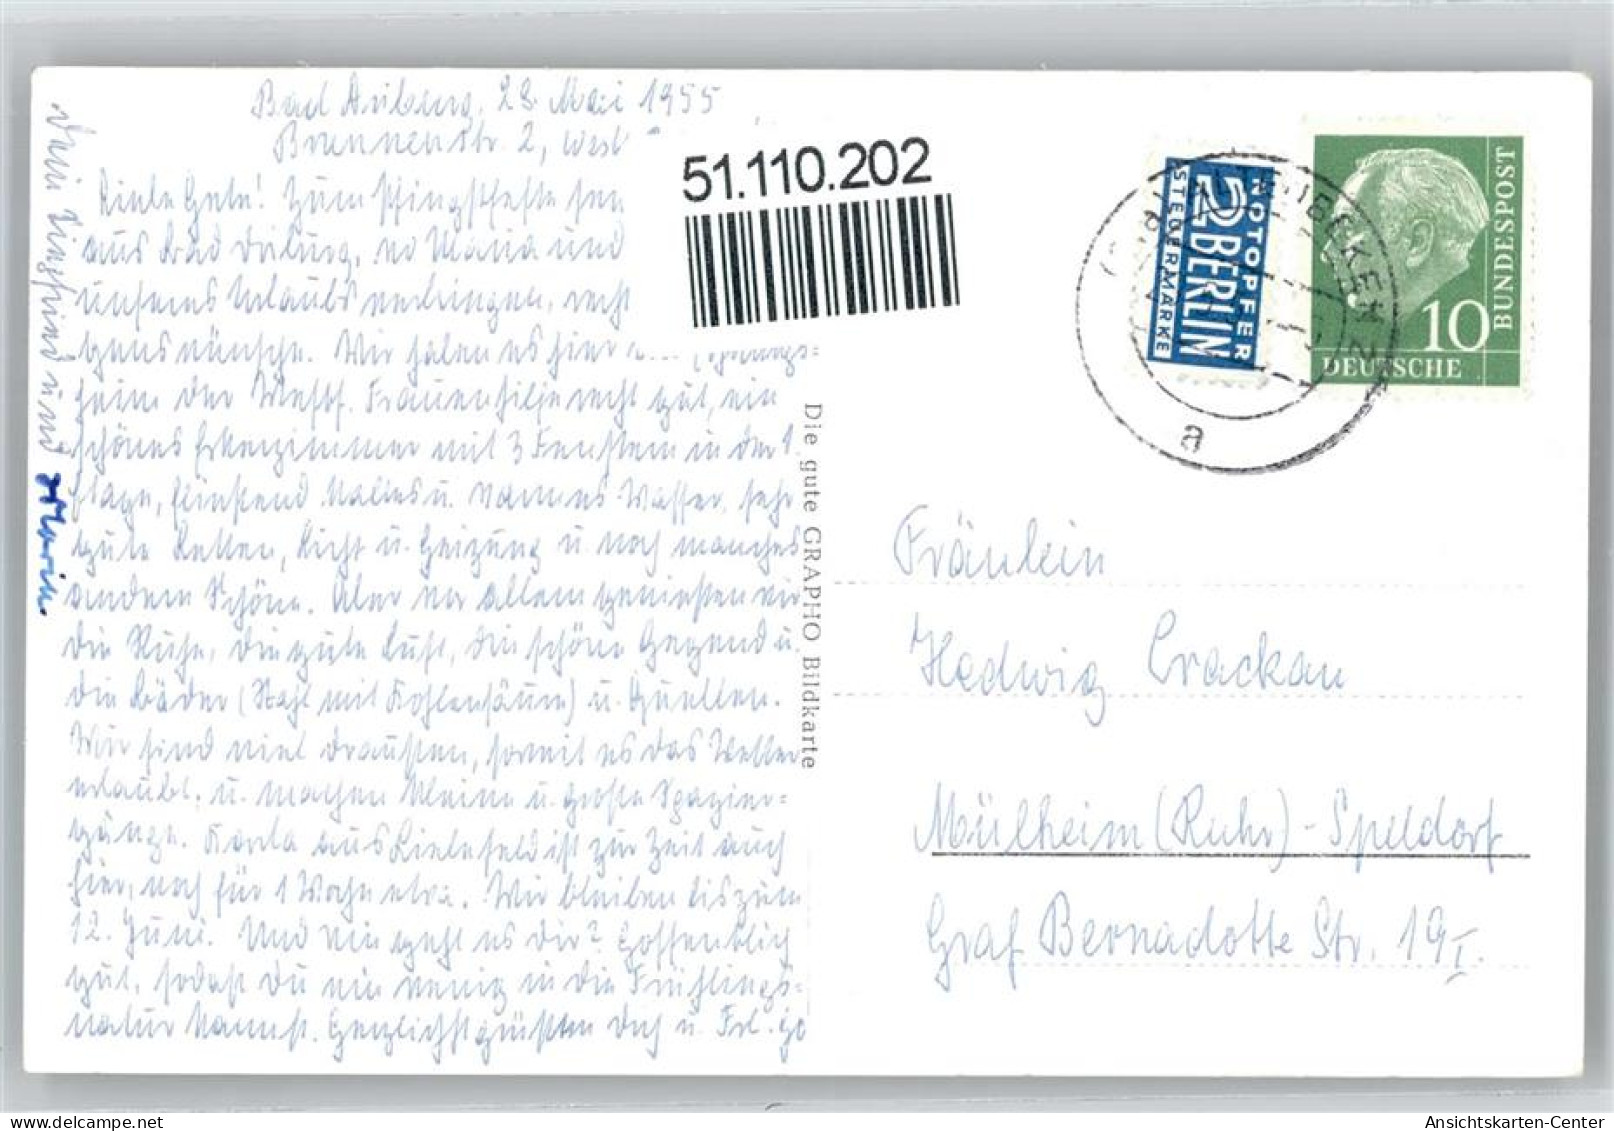 Bad Driburg, 28. Mai 1955
Brunnenstr. 2, Westf
Liebe Hete! Zum Pfingstfeste sen
aus Bad Driburg, wo Maria und
unseres Urlaubs verbringen, recht
genswünsche. Wir haben es hier
heim der Westf. Frauenhilfe recht gut, ein
schönes Eckenzimmer mit 3 Fenstern in der 1.
Etage, fließend kaltes u. warmes Wasser, sehr
gute Betten, Licht u. Heizung u. noch manches
andere Schöne. Aber vor allem genießen wir
die Ruhe, die gute Luft, die schöne Gegend u.
die Bäder (Stahl mit Kohlensäure) u. Quellen.
Wir sind viel draußen, soweit es das Wetter
erlaubt, u. machen kleine u. große Spazier=
gänge. Karla aus Bielefeld ist zur Zeit auch
hier, noch für 1 Woche etwa. Wir bleiben bis zum
12. Juni. Und wie geht es Dir? Hoffentlich
gut, sodaß Du ein wenig in die Frühlings=
natur kannst. Herzlichst grüßen Dich u. Frl. Ho
Deine und Maria.
51.110.202
Die gute GRAPHO Bildkarte
NOTOPFER
2 BERLIN
STEUERMARKE
a
10
DEUTSCHE
BUNDESPOST
Fräulein
Hedwig Crackau
Mülheim (Ruhr)-Speldorf
Graf Bernadotte Str. 19 I.
Ansichtskarten-Center